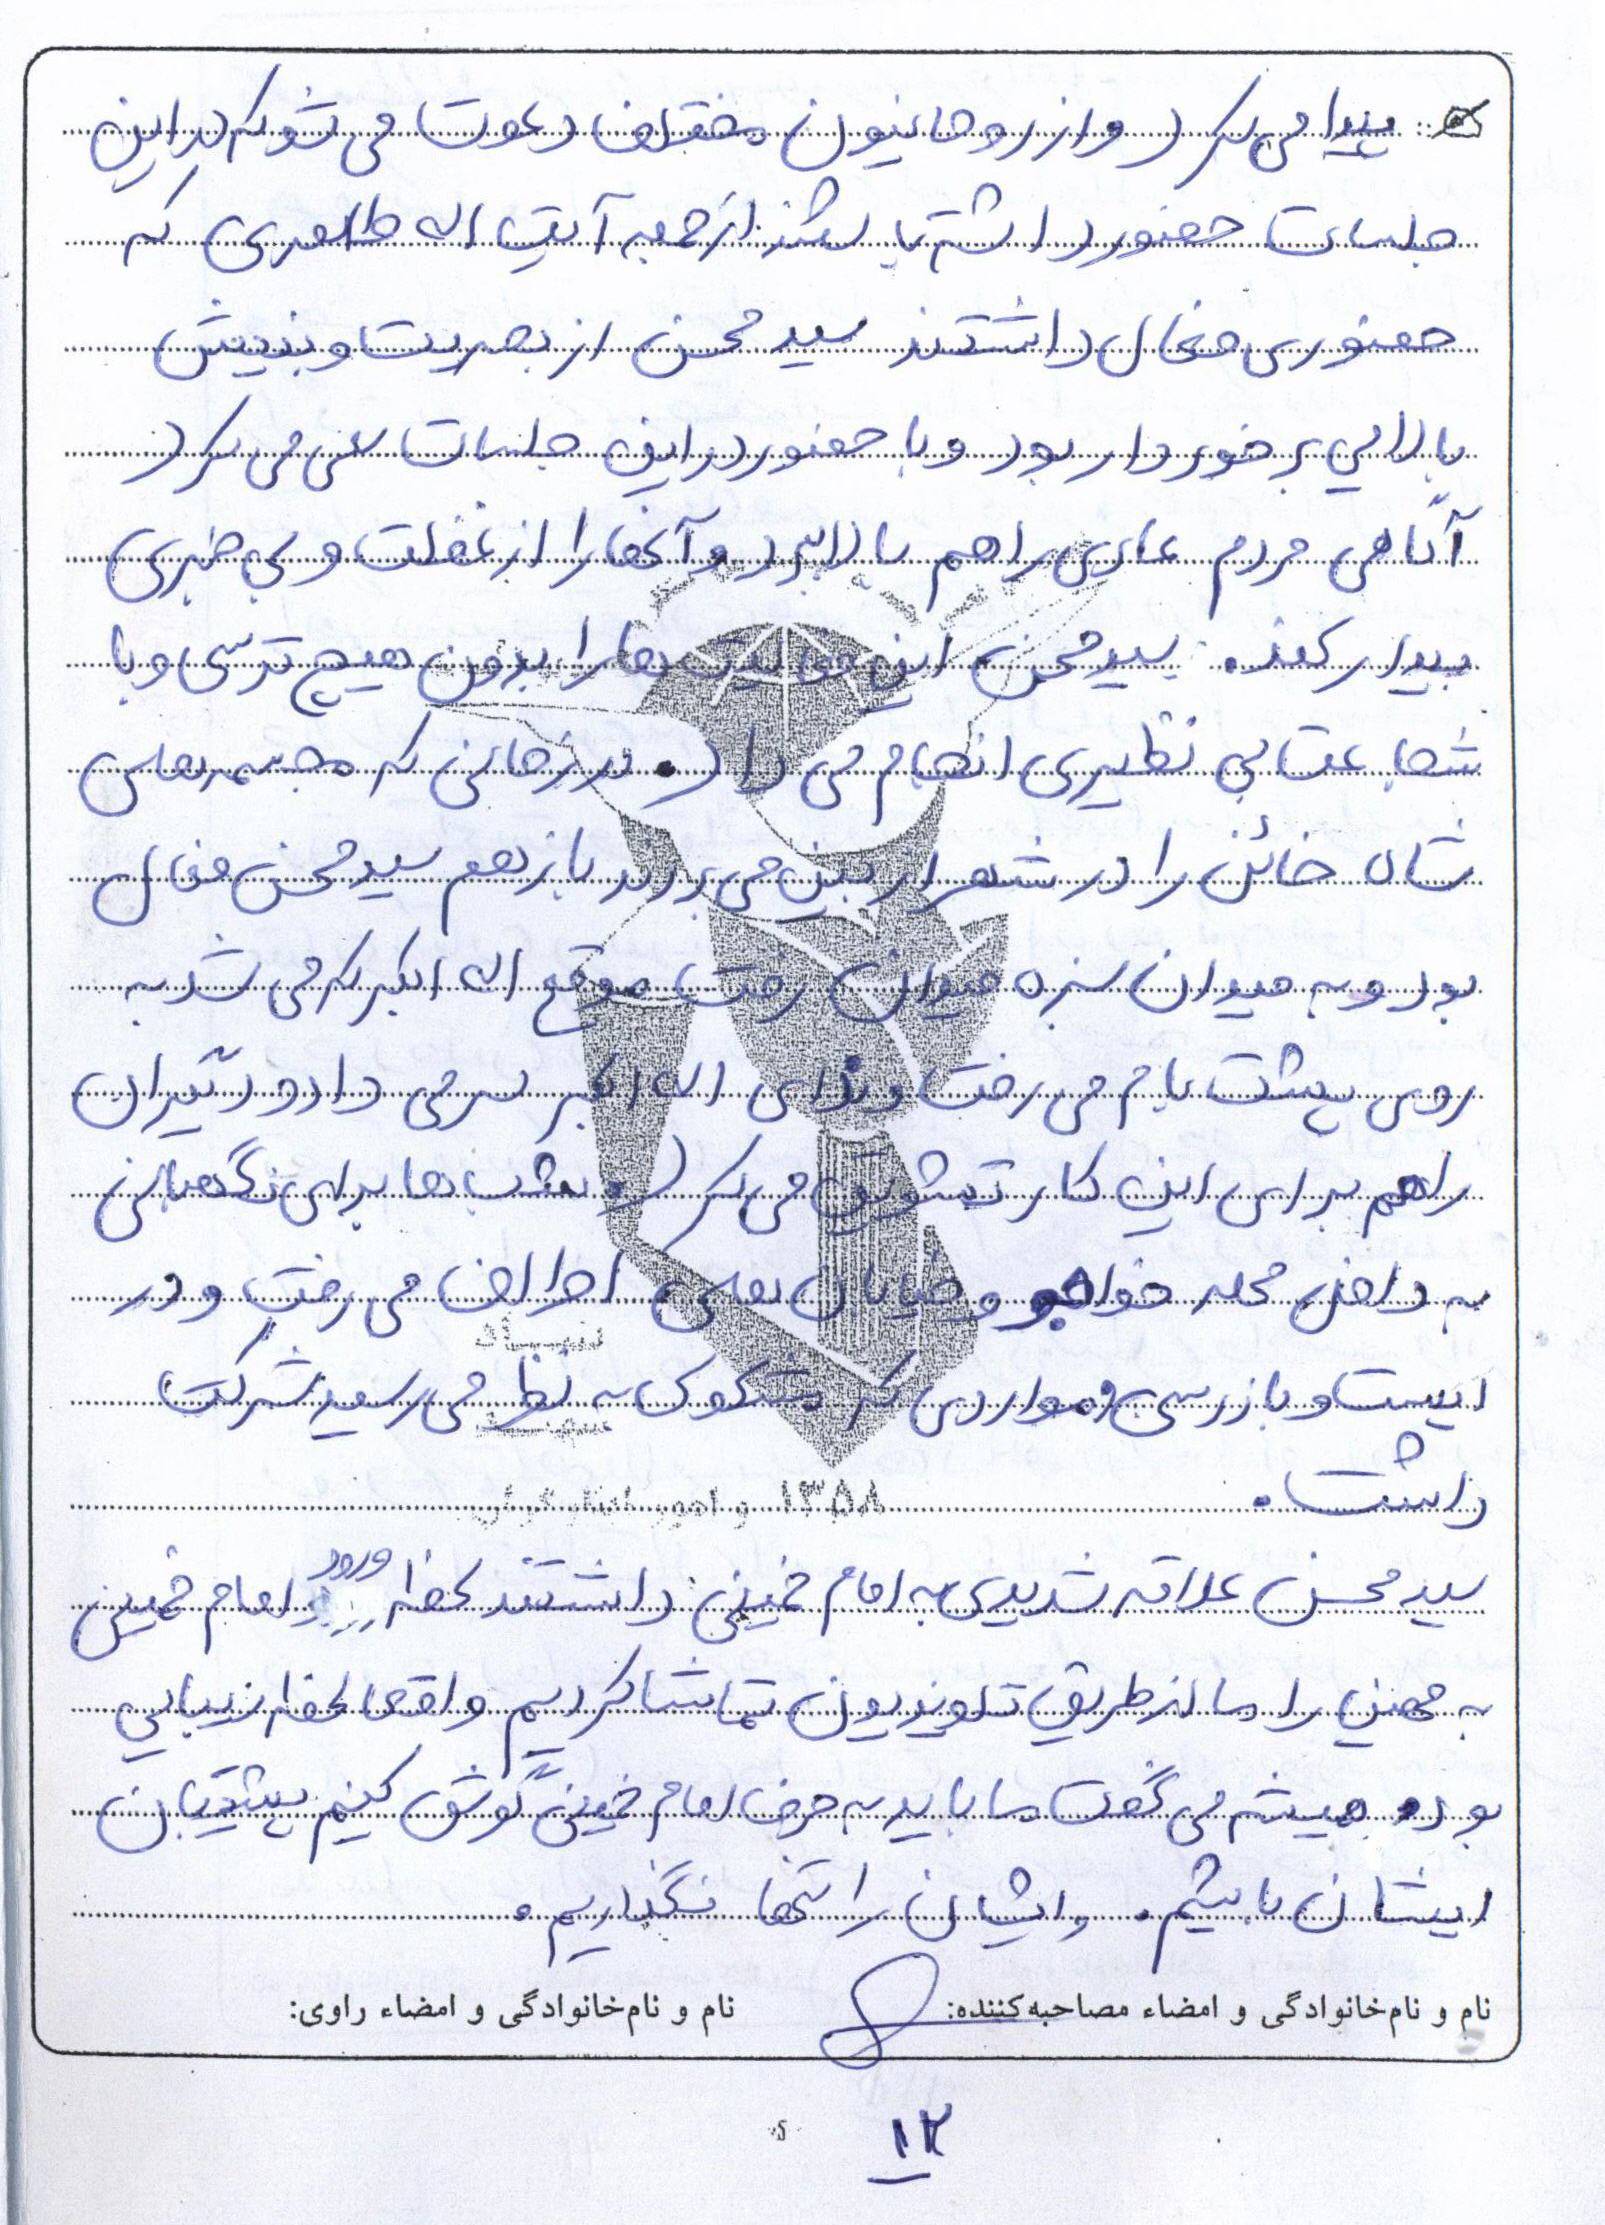 پیدا می کرد و از روحانیون مختلف دعوت می شو که در این
جلسات حضور داشته باشند از جمله آیت اله طاهری که
حضوری فعال داشتند سید محسن از بصریت و بنیش
بالایی برخوردار بود و با حضور در این جلسات سعی می کرد
آگاهی مردم عادی را هم بالا ببرد و آنها را از غفلت و بی خبری
بیدار کند. سید محسن این فعالیت ها را بدون هیچ ترسی و با
شجاعت بی نظیری انجام می داد. در زمانی که مجسمه های
شاه خائن را در شهر از بین می بردند باز هم سید محسن فعال
بود و به میدان سبزه میدان رفت موقع اله اکبر که می شد به
روی پشت بام می رفت و ندای اله اکبر سر می داد و دیگران
را هم برای این کار تشویق می کرد و شب ها برای نگهبانی
به داخل محله خواجو و خیابان های اطراف می رفت و در
ایست و بازرسی و مواردی که مشکوک به نظر می رسید شرکت
داشت.
سید محسن علاقه شدیدی به امام خمینی داشتند لحظه ورود امام خمینی
به میهن را ما از طریق تلویزیون تماشا کردیم واقعا لحظه زیبایی
بود و همیشه می گفت ما باید به حرف امام خمینی گوش کنیم پشتیبان
ایشان باشیم. و ایشان را تنها نگذاریم.
نام و نام‌خانوادگی و امضاء مصاحبه‌کننده: نام و نام‌خانوادگی و امضاء راوی:
۱۲
بنیاد
شهید
۱۳۵۸ و امور ایثارگران